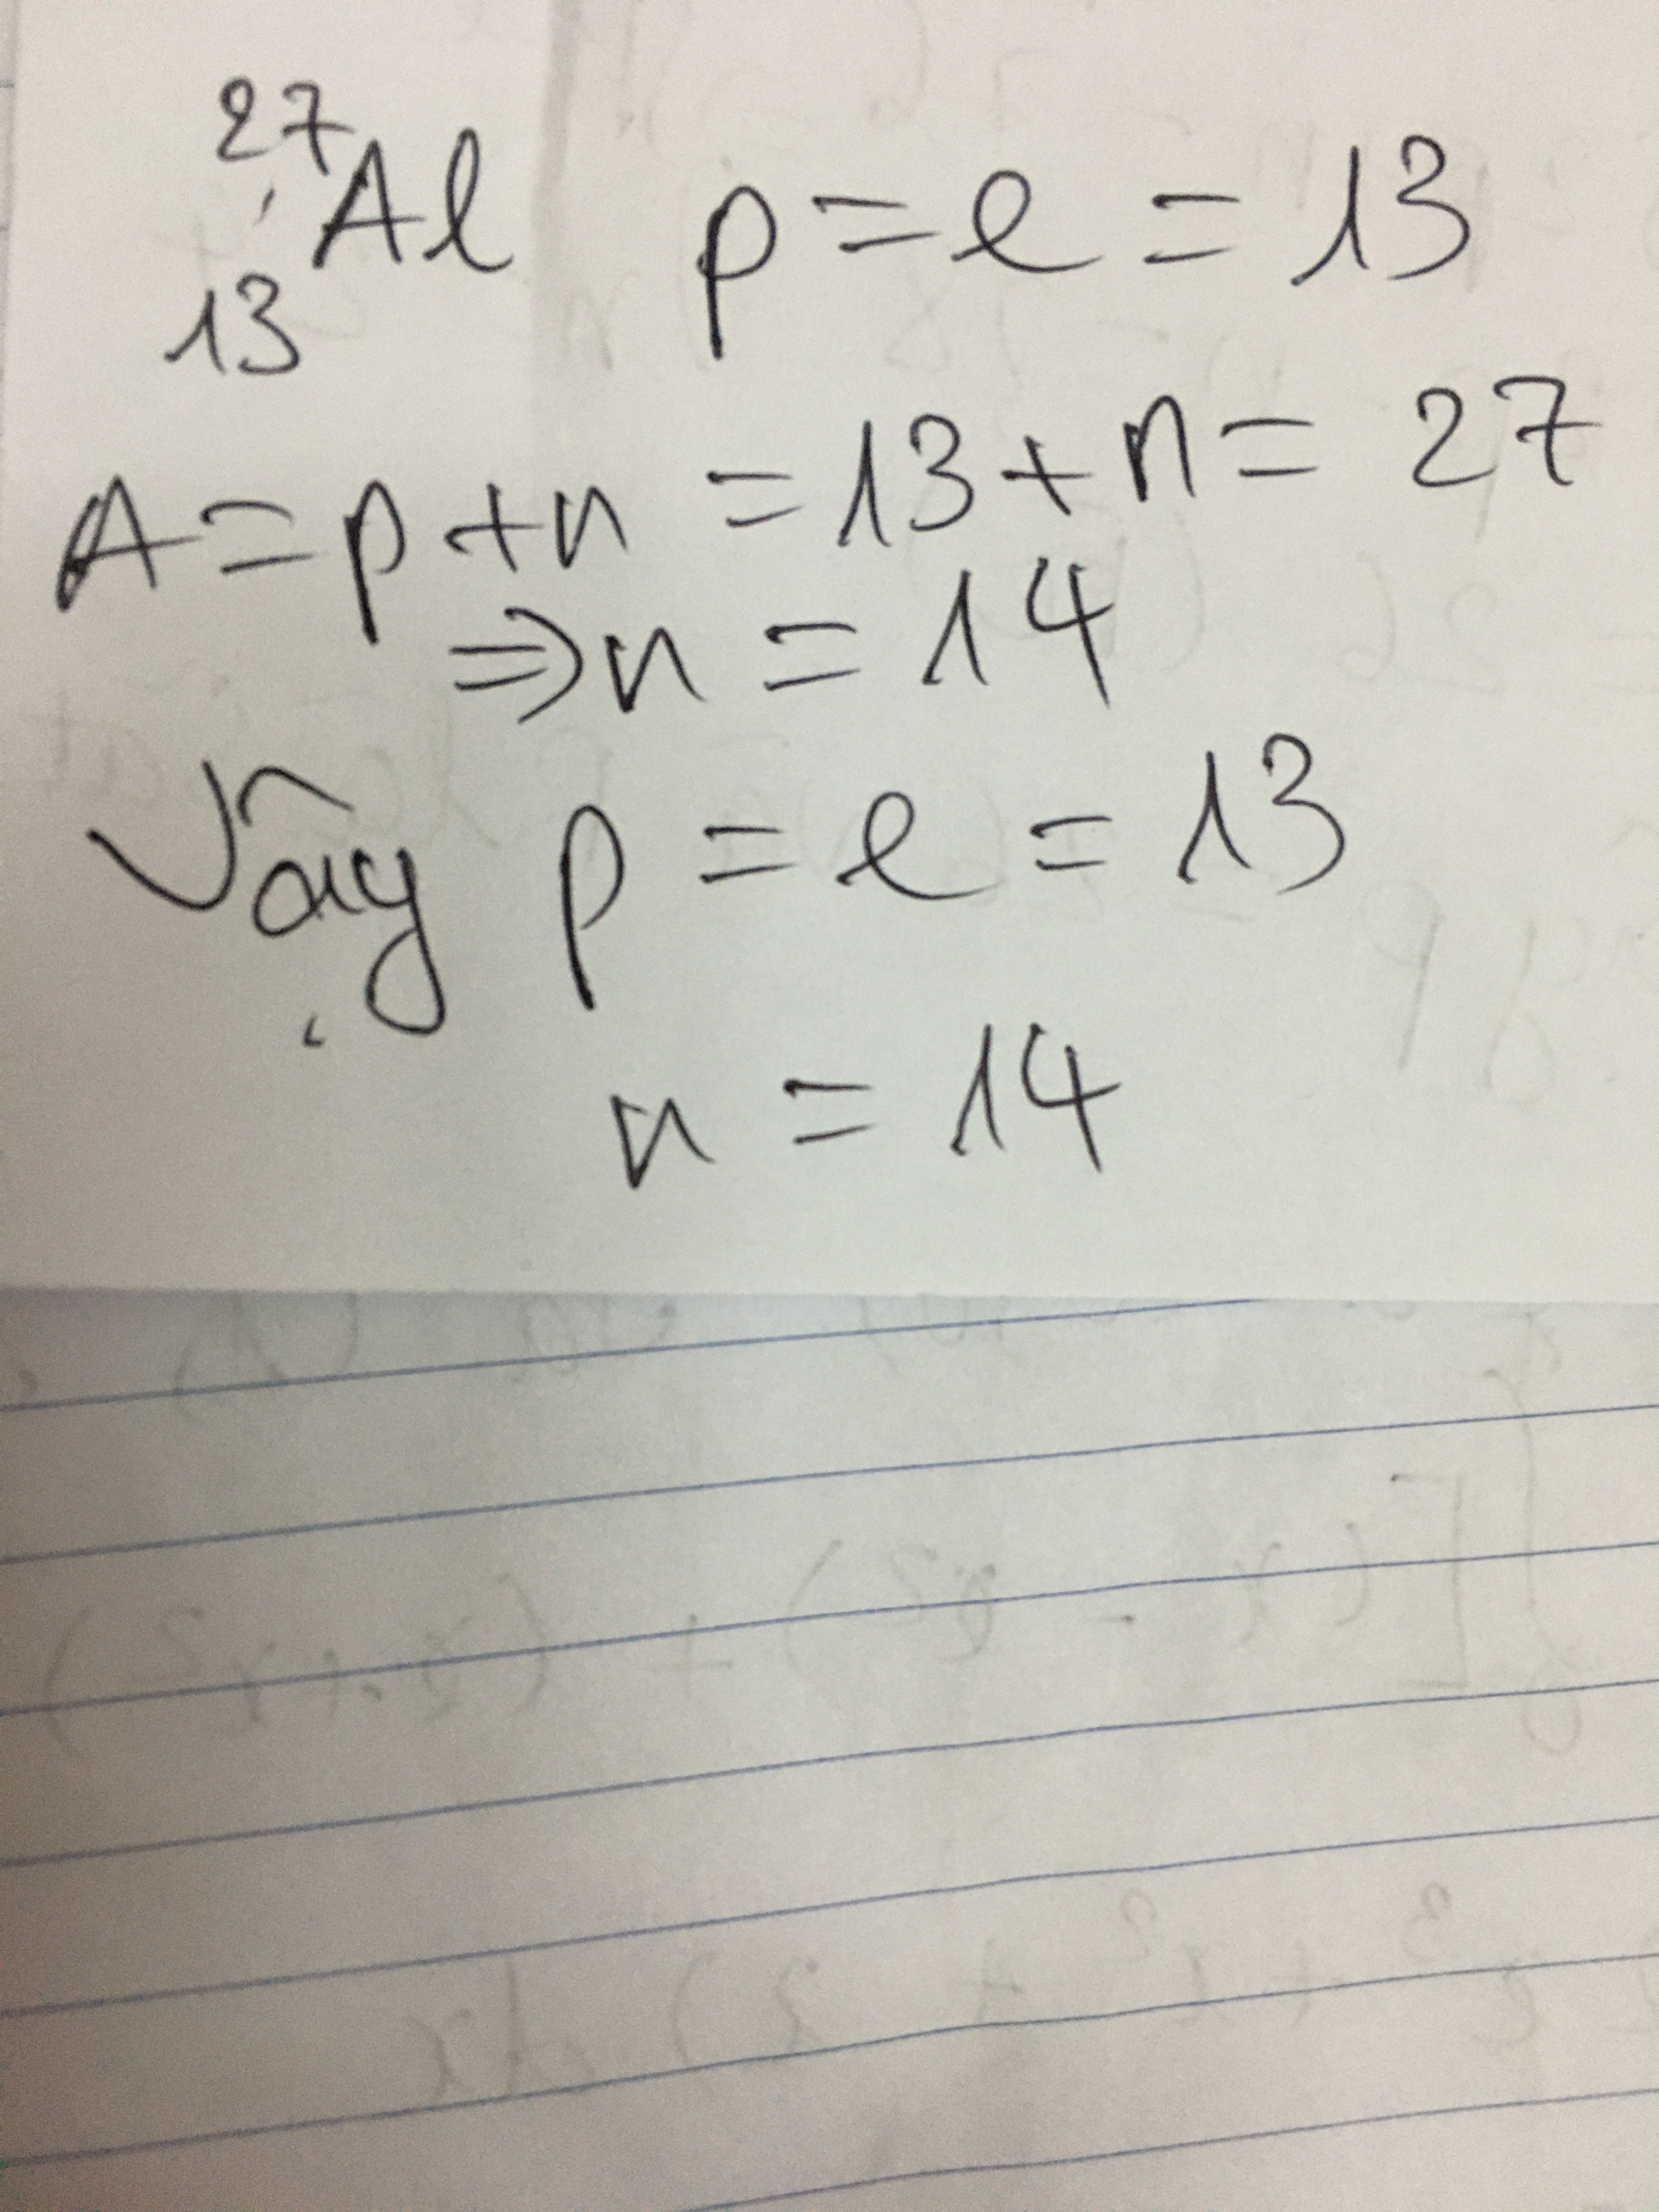 27
Al p = e = 13
13
A = p + n = 13 + n = 27
⇒ n = 14
Vậy p = e = 13
n = 14